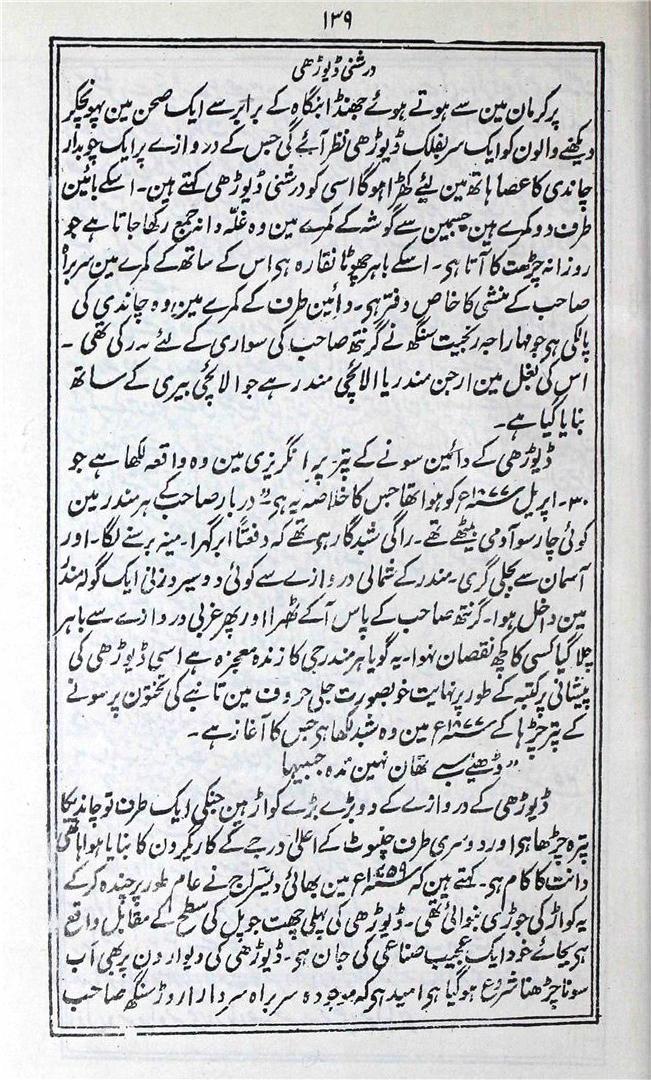 ۱۳۹
درشنی ڈیوڑھی
پرکرمان مین سے ہوتے ہوئے جھنڈا بنگاہ کے برابر سے ایک صحن مین پہونچکر
دیکھنے والون کو ایک سربفلک ڈیوڑھی نظر آئے گی جس کے دروازے پر ایک چوبدار
چاندی کا عصا ہاتھ مین لیئے کھڑا ہوگا اسی کو درشنی ڈیوڑھی کہتے ہین۔ اسکے بائین
طرف دو کمرے ہین جسمین سے گوشہ کے کمرے مین وہ غلّہ دانہ جمع رکھا جاتا ہے جو
روزانہ چڑھت کا آتا ہی۔ اسکے باہر چھوٹا نقارہ ہی اس کے ساتھ کے کمرے مین سربراہ
صاحب کے منشی کا خاص دفتر ہی۔ دائین طرف کے کمرے مین وہ چاندی کی
پالکی ہی جو مہاراجہ رنجیت سنگھ نے گرنتھ صاحب کی سواری کے لئے نذر کی تھی ۔
اس کی بغل مین ارجن مندر یا الائچی مندر ہے جو الائچی بیری کے ساتھ
بنایا گیا ہے۔
ڈیوڑھی کے دائین سونے کے پتر پر انگریزی مین وہ واقعہ لکھا ہے جو
۳۰۔ اپریل ۱۸۷۷ء کو ہوا تھا جس کا خلاصہ یہ ہی " دربار صاحب کے ہر مندر مین
کوئی چار سو آدمی بیٹھے تھے۔ راگی شبد گا رہی تھے کہ دفعتاً ابر گھرا۔ مینہ برسنے لگا۔ اور
آسمان سے بجلی گری۔ مندر کے شمالی دروازے سے کوئی دو سیر وزنی ایک گولہ مند
مین داخل ہوا۔ گرنتھ صاحب کے پاس آکے ٹھرا اور پھر غربی دروازے سے باہر
چلا گیا کسی کا کچھ نقصان نہوا۔ یہ گویا ہر مندر جی کا زندہ معجزہ ہے اسی ڈیوڑھی کی
پیشانی پر کتبہ کے طور پر نہایت خوبصورت جلی حروف مین تانبے کی تختون پر سونے
کے پتر چڑہا کے ۱۸۷۷ء مین وہ شبد لکھا ہی جس کا آغاز ہے۔
" ڈھٹے سبے تھان نہین تدہ جیہا
ڈیوڑھی کے دروازے کے دو بڑے بڑے کواڑ ہین جنکی ایک طرف تو چاندیکا
پترہ چڑھا ہی اور دوسری طرف چنیوٹ کے اعلیٰ درجے کے کاریگرون کا بنایا ہوا ہاتھی
دانت کا کام ہی۔ کہتے ہین کہ مین بھائی دیسراج نے عام طور پر چندہ کرکے
یہ کواڑ کی جوڑی بنوائی تھی۔ ڈیوڑھی کی پہلی چھت جو پل کی سطح کے مقابل واقع
ہی بجائے خود ایک عجیب صناعی کی جان ہی۔ ڈیوڑھی کی دیوارون پر بھی اب
سونا چڑھنا شروع ہوگیا ہی امید ہی کہ موجودہ سربراہ سردار اروڑ سنگھ صاحب